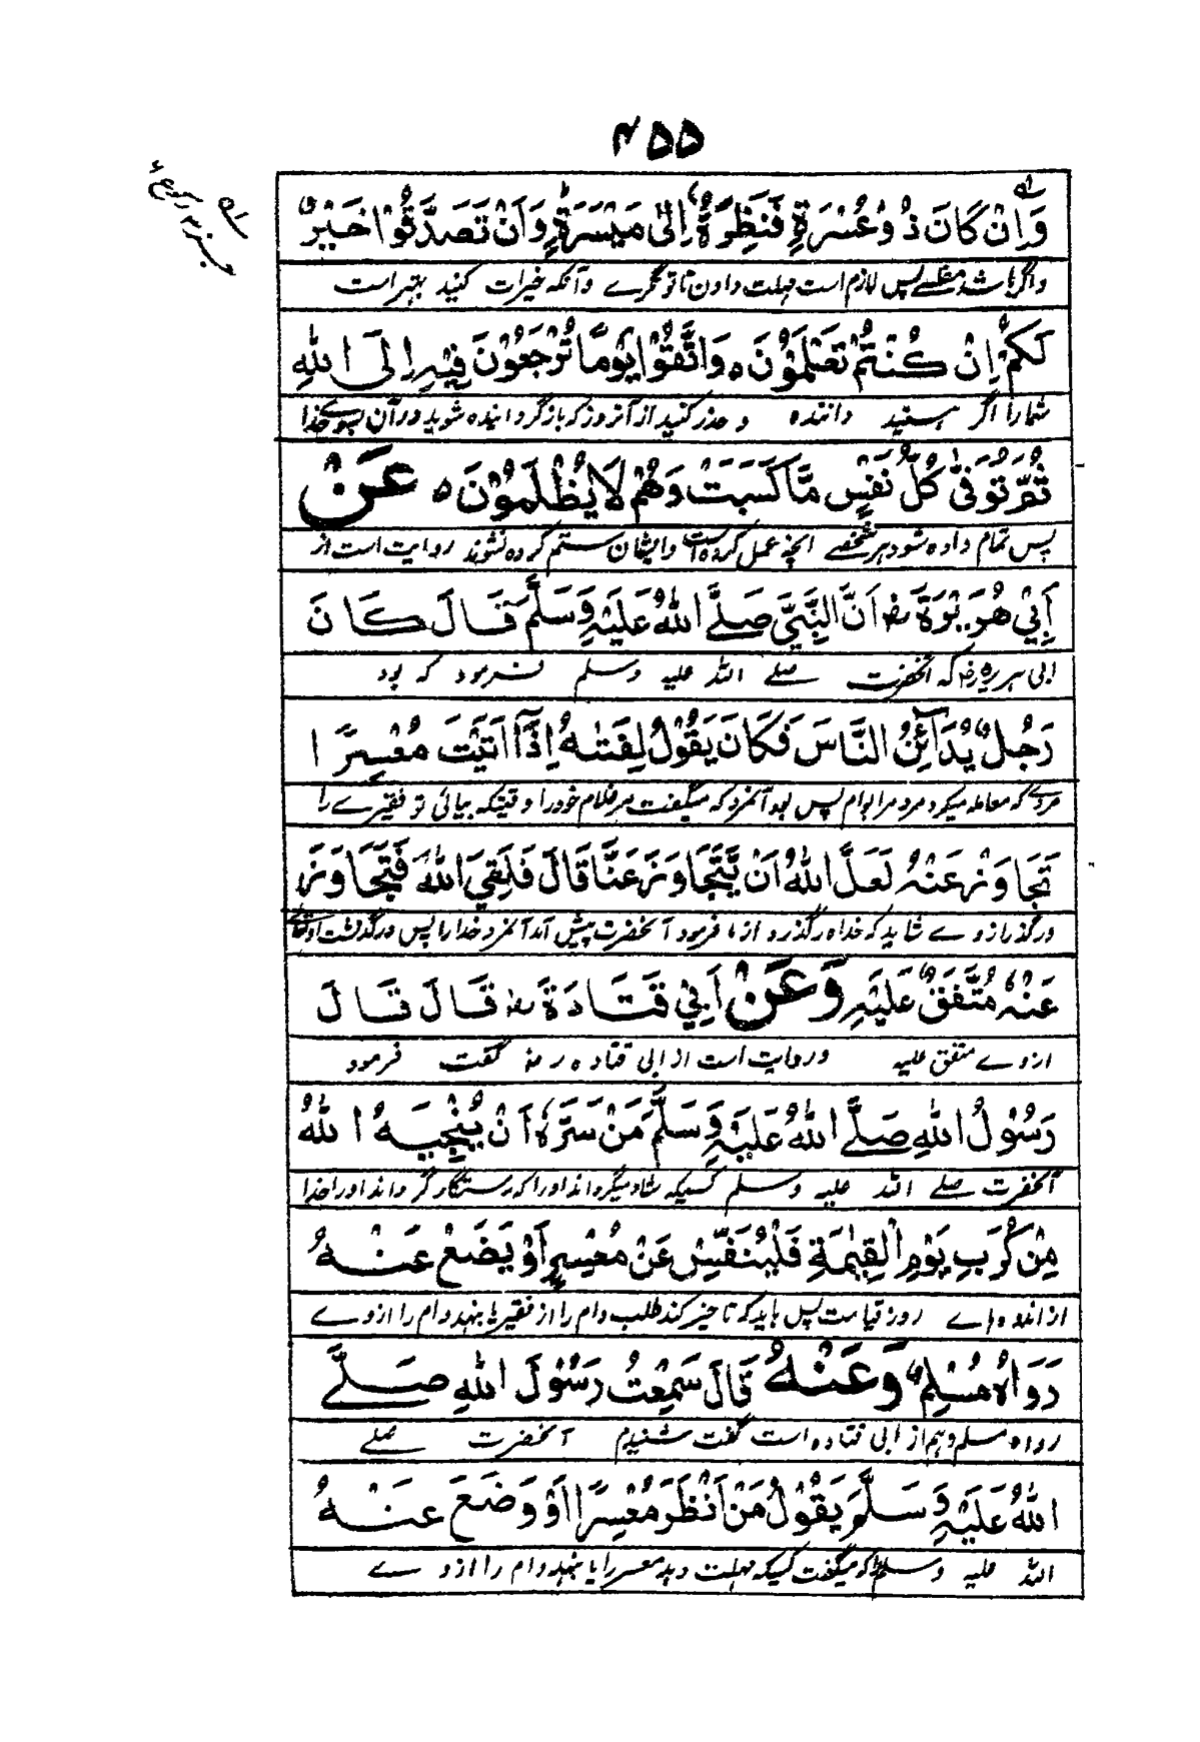 ۴۵۵
وَاِنْ كَانَ ذُوْ عُسْرَةٍ فَنَظِرَةٌ اِلٰى مَيْسَرَةٍ وَاَنْ تَصَدَّقُوْا خَيْرٌ
واگر باشد مفلسے پس لازم است مہلت دادن تا تونگرے وآنکہ خیرات کنید بہتر است
لَّكُمْ اِنْ كُنْتُمْ تَعْلَمُوْنَ ٥ وَاتَّقُوْا يَوْمًا تُرْجَعُوْنَ فِيْهِ اِلَى اللهِ
شمارا اگر ہستید دانندہ و حذر کنید از آنروز کہ باز گردانیدہ شوید در آن بسوے خدا
ثُمَّ تُوَفّٰى كُلُّ نَفْسٍ مَّا كَسَبَتْ وَهُمْ لَا يُظْلَمُوْنَ ٥ عَنْ
پس تمام دادہ شود ہر شخصے آنچہ عمل کردہ است وایشان ستم کردہ نشوند روایت است از
اَبِيْ هُرَيْرَةَ رض اَنَّ النَّبِيَّ صَلَّے اللهُ عَلَيْهِ وَسَلَّمَ قَالَ كَانَ
ابی ہریرہ رض کہ آنحضرت صلے اللہ علیہ وسلم فرمود کہ بود
رَجُلٌ يُدَآئِنُ النَّاسَ فَكَانَ يَقُوْلُ لِفَتٰىهُ اِذَآ اَتَيْتَ مُعْسِرًا
مردے کہ معاملہ میکرد مردمرا بوام پس بود آنمرد کہ میگفت مر غلام خود را وقتیکہ بیائی تو فقیرے را
تَجَاوَزْ عَنْهُ لَعَلَّ اللهُ اَنْ يَّتَجَاوَزَ عَنَّا قَالَ فَلَقِيَ اللهَ فَتَجَاوَزَ
درگذر ازوے شاید کہ خدا درگذرد از ما فرمود آنحضرت پیش آمد آنمرد خدا را پس درگذشت
عَنْهُ مُتَّفَقٌ عَلَيْهِ وَعَنْ اَبِيْ قَتَادَةَ رض قَالَ قَالَ
ازوے متفق علیہ وروایت است از ابی قتادہ رض گفت فرمود
رَسُوْلُ اللهِ صَلَّے اللهُ عَلَيْهِ وَسَلَّمَ مَنْ سَرَّهٗ اَنْ يُّنْجِيَهُ اللهُ
آنحضرت صلے اللہ علیہ وسلم کسیکہ شاد میگرداند اورا کہ رستگار گرداند اورا خدا
مِنْ كُرَبِ يَوْمِ الْقِيٰمَةِ فَلْيُنَفِّسْ عَنْ مُعْسِرٍ اَوْ يَضَعْ عَنْهُ
از اندوہ ہاے روز قیامت پس باید کہ تاخیر کند طلب وام را از فقیر یا بنہد وام را ازوے
رَوَاهُ مُسْلِمٌ وَعَنْهُ قَالَ سَمِعْتُ رَسُوْلَ اللهِ صَلَّے
رواہ مسلم وہم از ابی قتادہ است گفت شنیدم آنحضرت صلے
اللهُ عَلَيْهِ وَسَلَّمَ يَقُوْلُ مَنْ اَنْظَرَ مُعْسِرًا اَوْ وَضَعَ عَنْهُ
اللہ علیہ وسلم را کہ میگفت کسیکہ مہلت دہد معسر را یا بنہد وام را ازوے